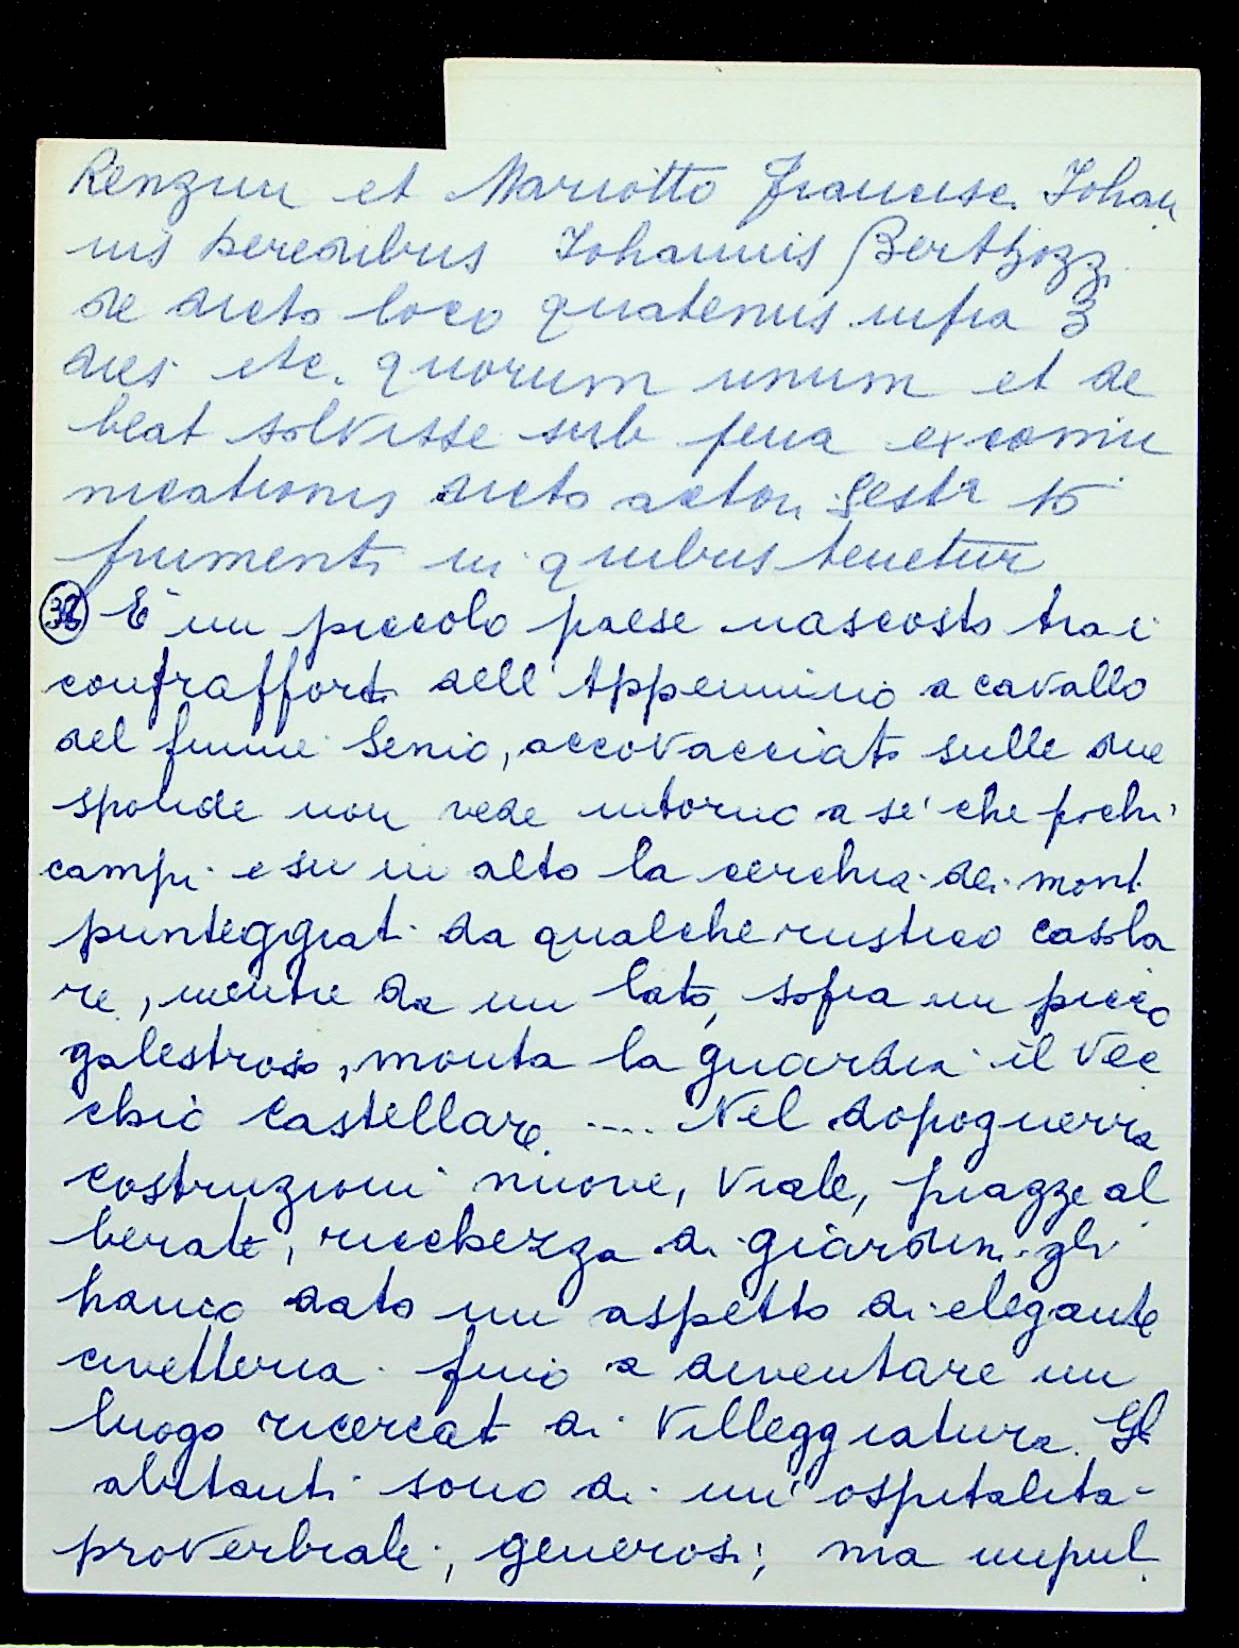 Renzum et Mariotto Francisc. Johan
nis heredibus Johannis Berthozzi
de dicto loco quatenus infra 3
dies etc. quorum unum et de
beat solvisse sub pena excomu
nicationis dicto actori sest. 10
frumenti in quibus tenetur
(38) E' un piccolo paese nascosto tra i
contrafforti dell'Appennino a cavallo
del fiume Senio, accovacciato sulle due
sponde non vede intorno a sé che pochi
campi e su in alto la cerchia dei monti
punteggiati da qualche rustico casola
re, mentre da un lato, sopra un picco
galestroso, monta la guardia il vec
chio Castellare .... Nel dopoguerra
costruzioni nuove, viale, piazze al
berate, ricchezza di giardini gli
hanno dato un aspetto di elegante
civetteria fino a diventare un
luogo ricercato di villeggiatura. Gli
abitanti sono di un'ospitalità
proverbiale, generosi, ma impul